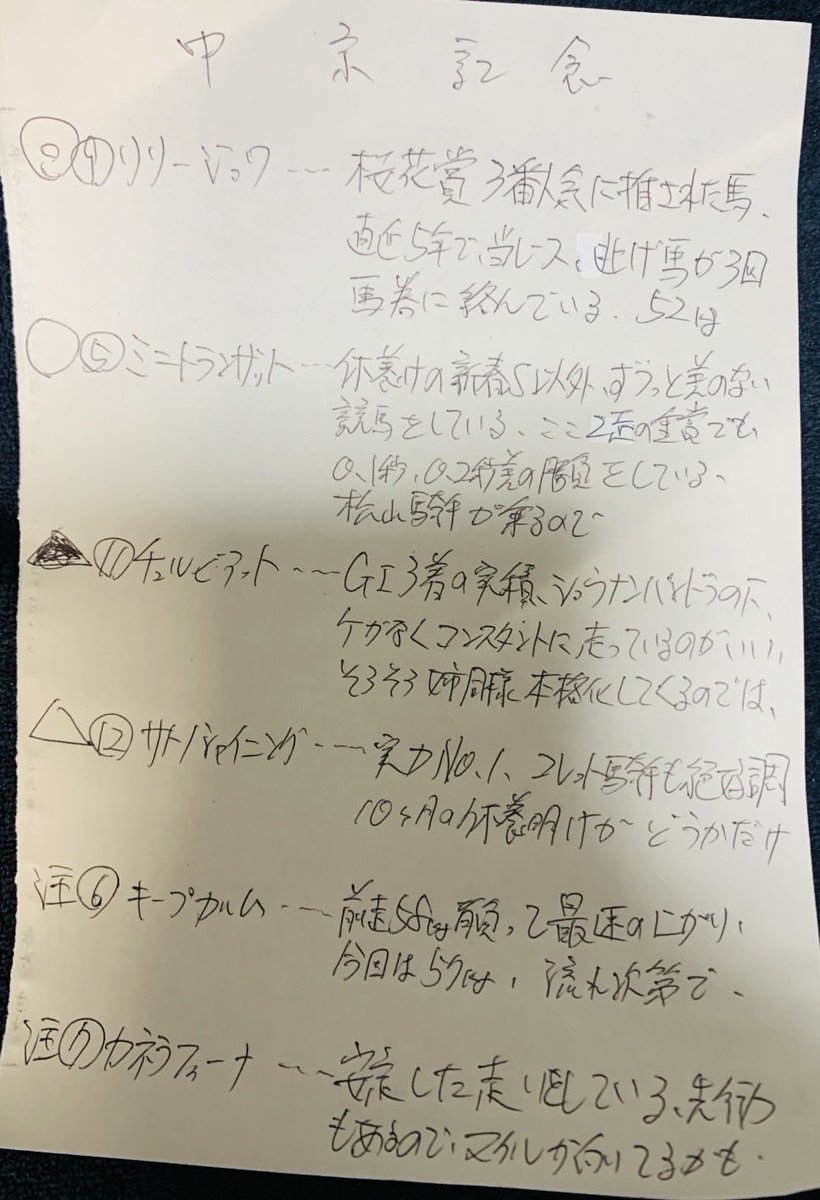 中京記念
◎④リリージョワ…桜花賞3番人気に推された馬、
直近5年で、当レース、逃げ馬が3回
馬券に絡んでいる、52kg
○⑤ミニトランザット…休養明けの新春S以外、ずうっと差のない
競馬をしている、ここ2走の重賞でも
0.1秒、0.2秒差の勝負をしている、
松山騎手が乗るので
▲⑪チェルビアット…GI3着の実績、ショウナンパンドラの下、
ケガなくコンスタントに走っているのがいい、
そろそろ姉同様本格化してくるのでは、
△⑫サトノシャイニング…実力NO.1、コレット騎手も絶好調
10ヶ月の休養明けがどうかだけ
注⑥キープカルム…前走58kg背負って最速の上がり、
今回は57kg、流れ次第で、
注⑦カネラフィーナ…安定した走りをしている、先行力
もあるので、マイルが向いてるかも.